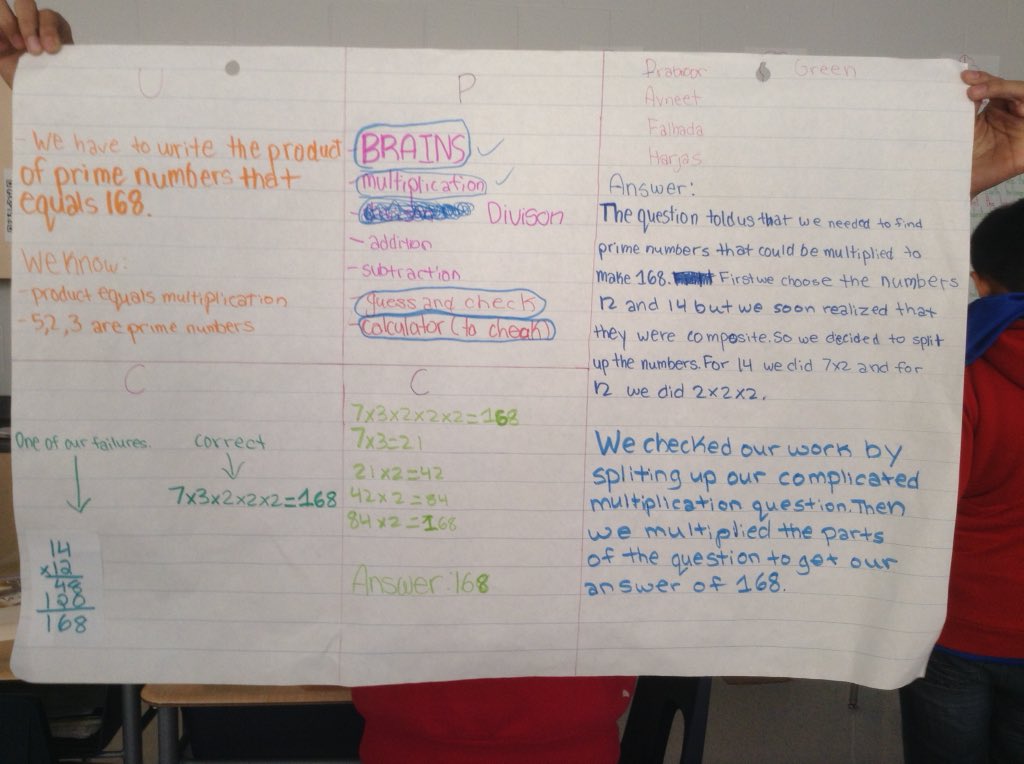 U
- We have to write the product
of prime numbers that
equals 168.
We know:
- product equals multiplication
- 5,2,3 are prime numbers
P
- BRAINS
- multiplication
- Divison
- addition
- subtraction
- guess and check
- calculator (to check)
C
One of our failures.
correct
7x3x2x2x2=168
14
x12
48
128
168
C
7x3x2x2x2=168
7x3=21
21x2=42
42x2=84
84x2=168
Answer: 168
Green
Avneet
Harjas
Answer:
The question told us that we needed to find
prime numbers that could be multiplied to
make 168. First we choose the numbers
12 and 14 but we soon realized that
they were composite. So we decided to split
up the numbers. For 14 we did 7x2 and for
12 we did 2x2x2.
We checked our work by
spliting up our complicated
multiplication question. Then
we multiplied the parts
of the question to get our
answer of 168.